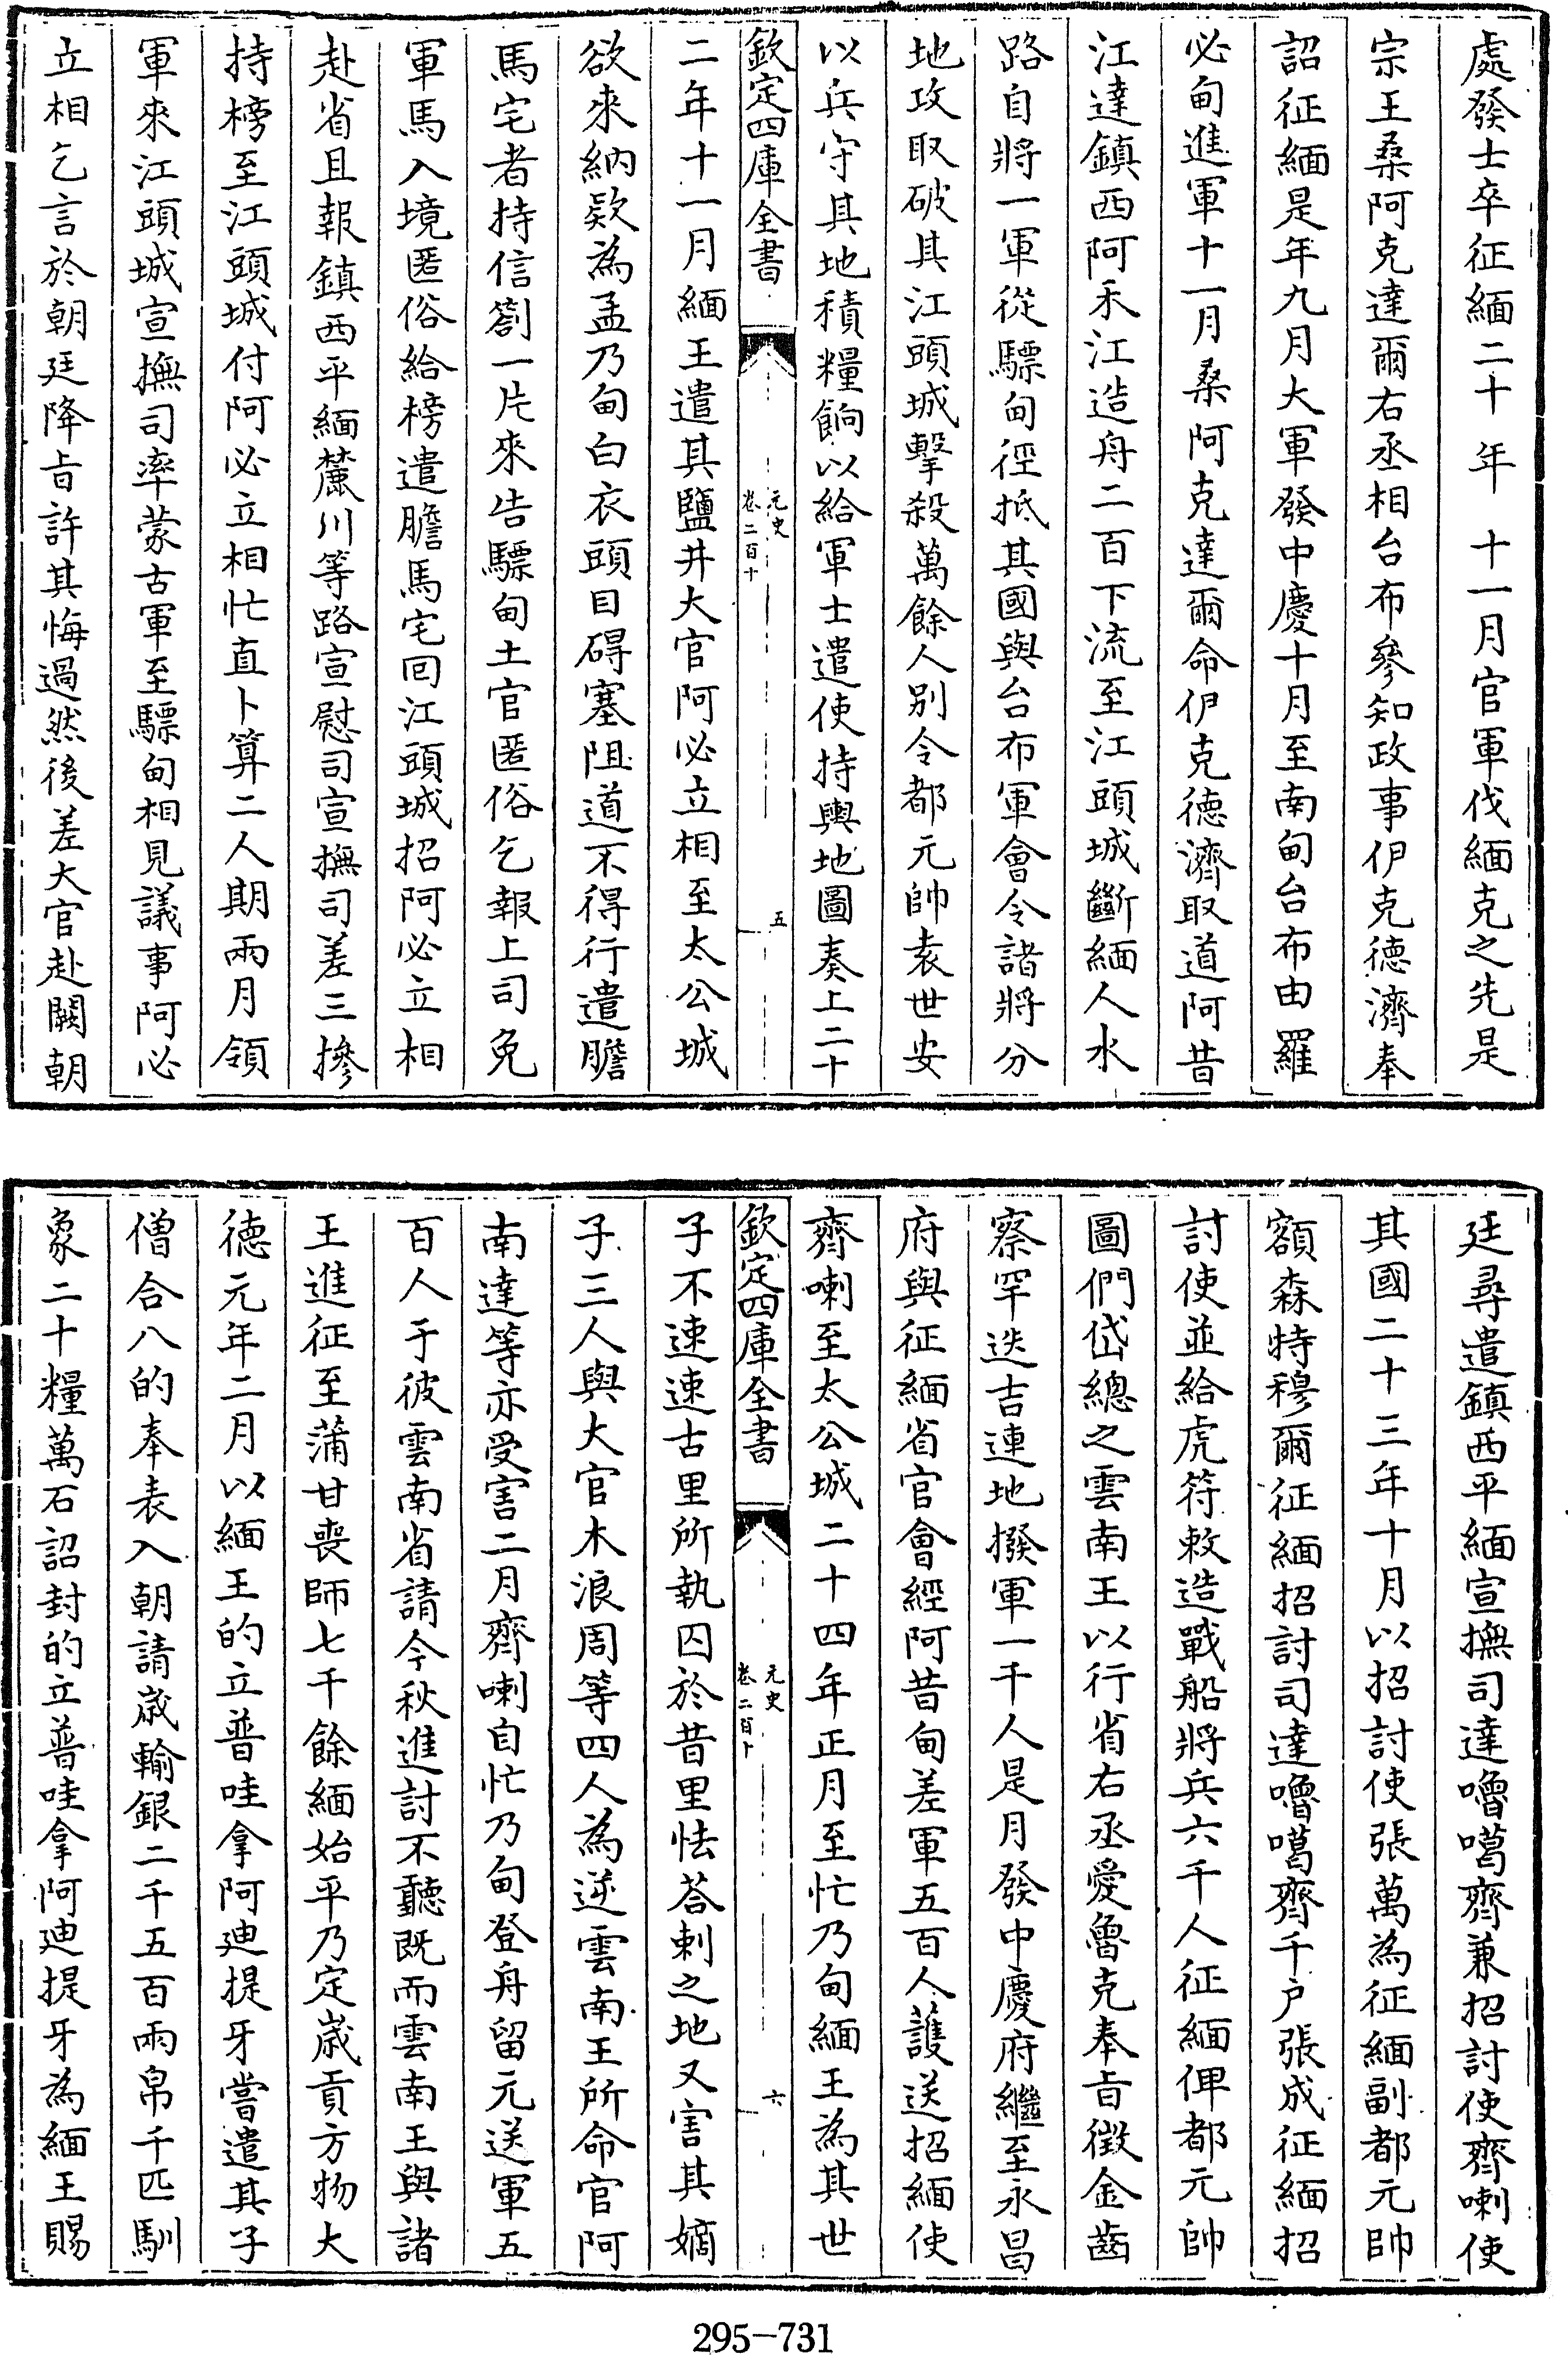 處發士卒征緬二十年十一月官軍伐緬克之先是
宗王桑阿克達爾右丞相台布參知政事伊克德濟奉
詔征緬是年九月大軍發中慶十月至南甸台布由羅
必甸進軍十一月桑阿克達爾命伊克德濟取道阿昔
江達鎮西阿禾江造舟二百下流至江頭城斷緬人水
路自將一軍從驃甸徑抵其國與台布軍會令諸將分
地攻取破其江頭城擊殺萬餘人別令都元帥袁世安
以兵守其地積糧餉以給軍士遣使持輿地圖奏上二十
欽定四庫全書
元史
卷二百十
五
二年十一月緬王遣其鹽井大官阿必立相至太公城
欲來納欵為孟乃甸白衣頭目䃶塞阻道不得行遣膽
馬宅者持信劄一片來告驃甸土官匿俗乞報上司免
軍馬入境匿俗給榜遣膽馬宅回江頭城招阿必立相
赴省且報鎮西平緬麓川等路宣慰司宣撫司差三摻
持榜至江頭城付阿必立相忙直卜算二人期兩月領
軍來江頭城宣撫司率蒙古軍至驃甸相見議事阿必
立相乞言於朝廷降旨許其悔過然後差大官赴闕朝
廷尋遣鎮西平緬宣撫司達嚕噶齊兼招討使齊喇使
其國二十三年十月以招討使張萬為征緬副都元帥
額森特穆爾征緬招討司達嚕噶齊千户張成征緬招
討使並給虎符敕造戰船將兵六千人征緬俾都元帥
圖們岱總之雲南王以行省右丞愛魯克奉旨徴金齒
察罕迭吉連地撥軍一千人是月發中慶府繼至永昌
府與征緬省官會經阿昔甸差軍五百人護送招緬使
齊喇至太公城二十四年正月至忙乃甸緬王為其世
欽定四庫全書
元史
卷二百十
六
子不速速古里所執囚於昔里怯荅剌之地又害其嫡
子三人與大官木浪周等四人為逆雲南王所命官阿
南達等亦受害二月齊喇自忙乃甸登舟留元送軍五
百人于彼雲南省請今秋進討不聽既而雲南王與諸
王進征至蒲甘喪師七千餘緬始平乃定歳貢方物大
德元年二月以緬王的立普哇拿阿迪提牙嘗遣其子
僧合八的奉表入朝請歳輸銀二千五百兩帛千匹馴
象二十糧萬石詔封的立普哇拿阿迪提牙為緬王賜
295-731